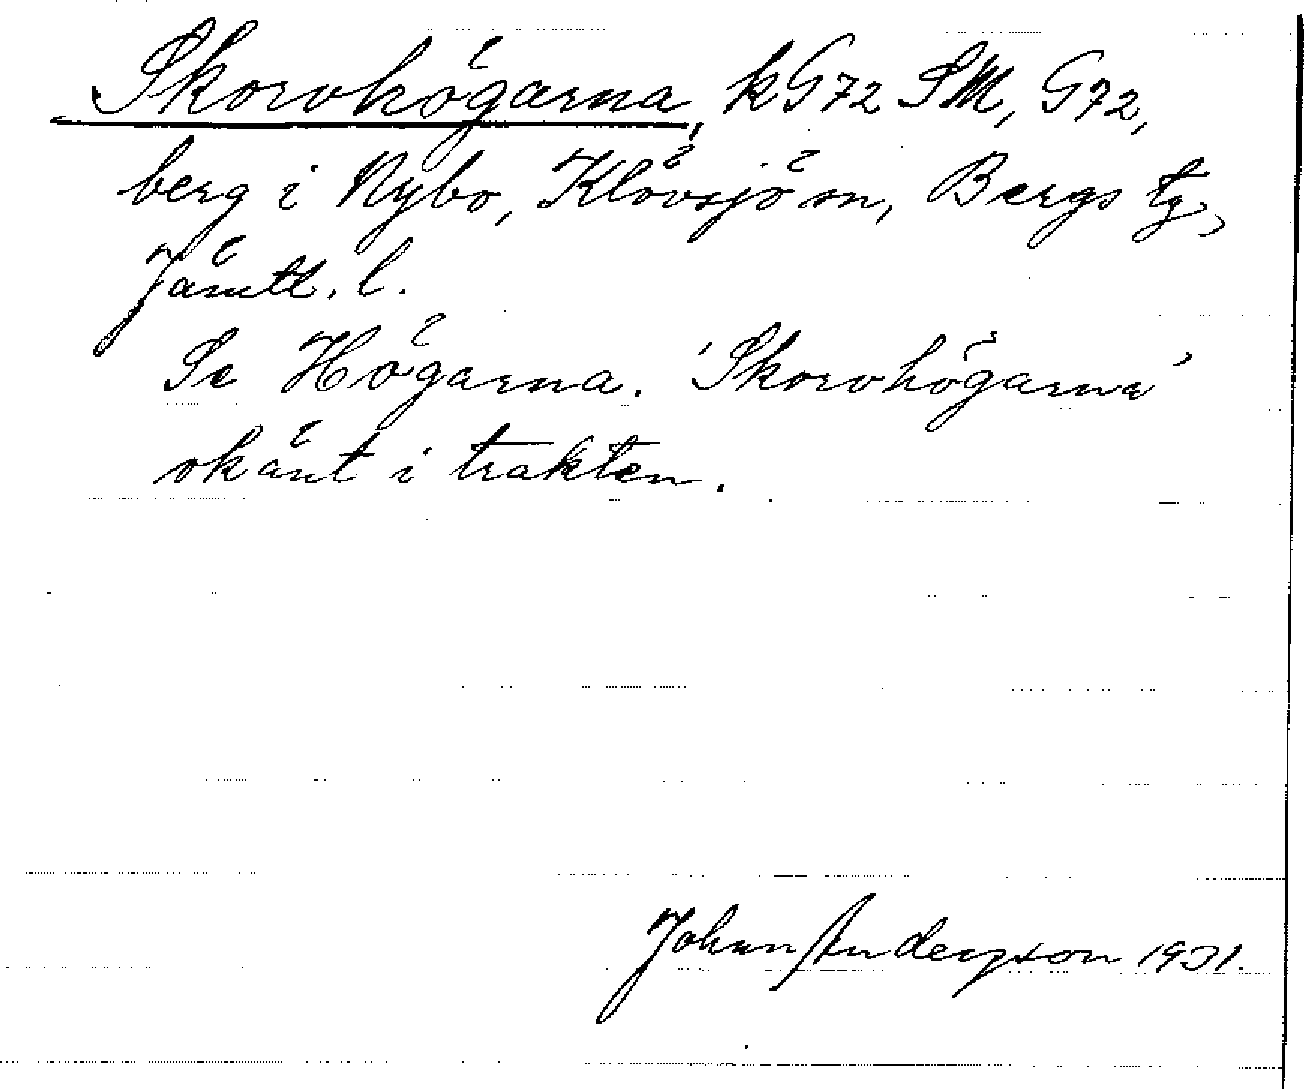 Skorvhögarna, kG72 SM, G72,
berg i Nybo, Klövsjö sn, Bergs tg,
Jämtl. l.
Se Högarna. 'Skorvhögarna'
okänt i trakten.
Johan Andersson 1931.